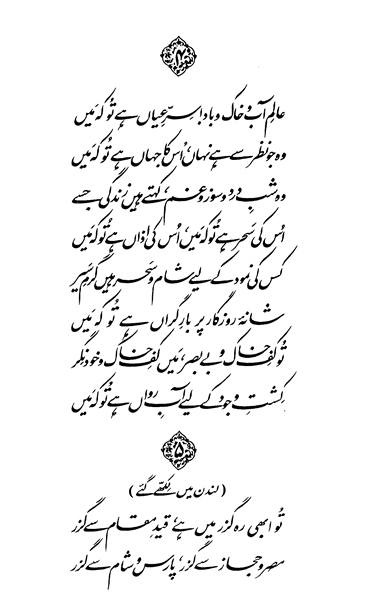 ۴
عالمِ آب و خاک و باد! سرِّ عیاں ہے تُو کہ مَیں
وہ جو نظر سے ہے نہاں، اُس کا جہاں ہے تُو کہ مَیں
وہ شبِ درد و سوز و غم، کہتے ہیں زندگی جسے
اُس کی سَحر ہے تُو کہ مَیں، اُس کی اذاں ہے تُو کہ مَیں
کس کی نمود کے لیے شام و سحر ہیں گرمِ سَیر
شانۂ روزگار پر بارِ گراں ہے تُو کہ مَیں
تُو کفِ خاک و بے بصر، مَیں کفِ خاک و خودنِگر
کِشتِ وجود کے لیے آبِ رواں ہے تُو کہ مَیں
۵
(لندن میں لِکھّے گئے)
تُو ابھی رہ گزر میں ہے، قیدِ مقام سے گزر
مصر و حجاز سے گزر، پارس و شام سے گزر